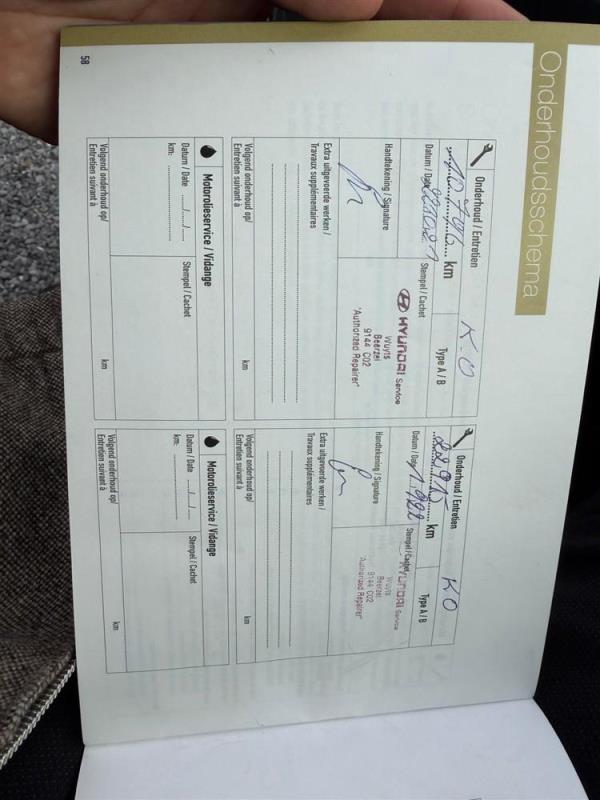 Onderhoudsschema
Onderhoud / Entretien
K O
km
Type A / B
Datum / Date
Stempel / Cachet
HYUNDAI Service
Wuyts
Beerzel
9144 C02
"Authorized Repairer"
Handtekening / Signature
Extra uitgevoerde werken /
Travaux supplémentaires
Volgend onderhoud op/
Entretien suivant à
km
Motorolieservice / Vidange
Datum / Date
Stempel / Cachet
km:
Volgend onderhoud op/
Entretien suivant à
km
Onderhoud / Entretien
K O
km
Type A / B
Datum / Date
Stempel / Cachet
HYUNDAI Service
Wuyts
Beerzel
9144 C02
"Authorized Repairer"
Handtekening / Signature
Extra uitgevoerde werken /
Travaux supplémentaires
Volgend onderhoud op/
Entretien suivant à
km
Motorolieservice / Vidange
Datum / Date
Stempel / Cachet
km:
Volgend onderhoud op/
Entretien suivant à
km
58